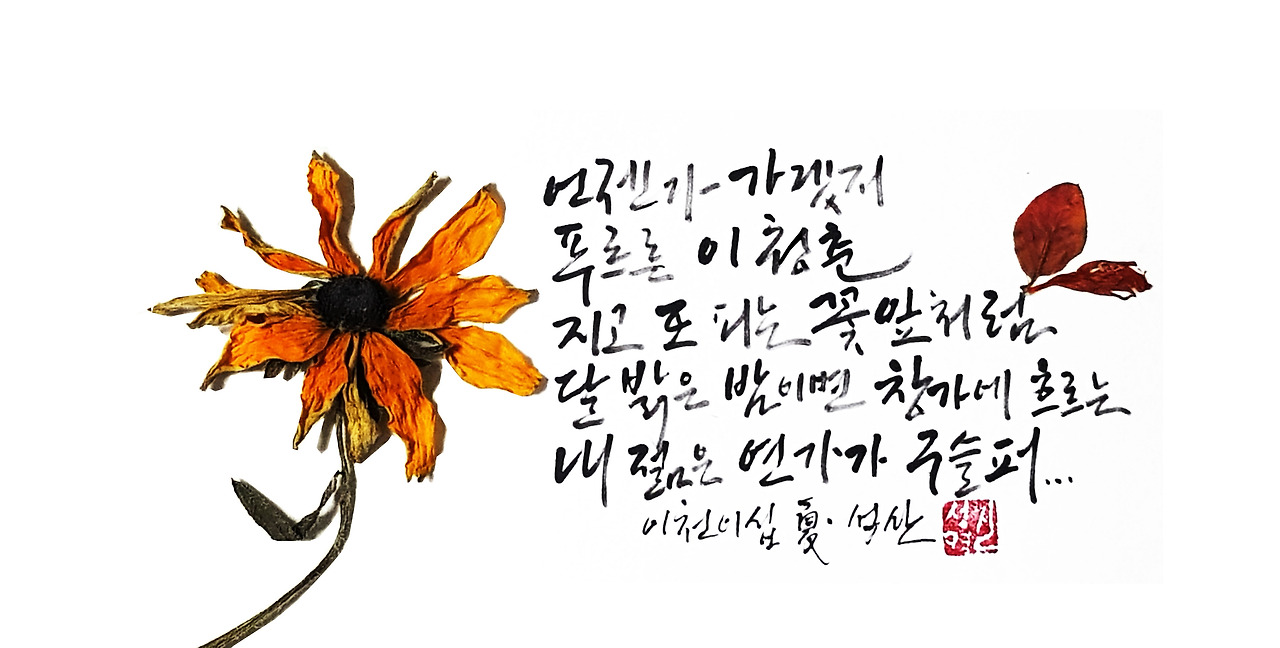 언젠가 가겠지
푸르른 이 청춘
지고 또 피는 꽃잎처럼
달 밝은 밤이면 창가에 흐르는
내 젊은 연가가 구슬퍼...
이천이십 夏· 석산